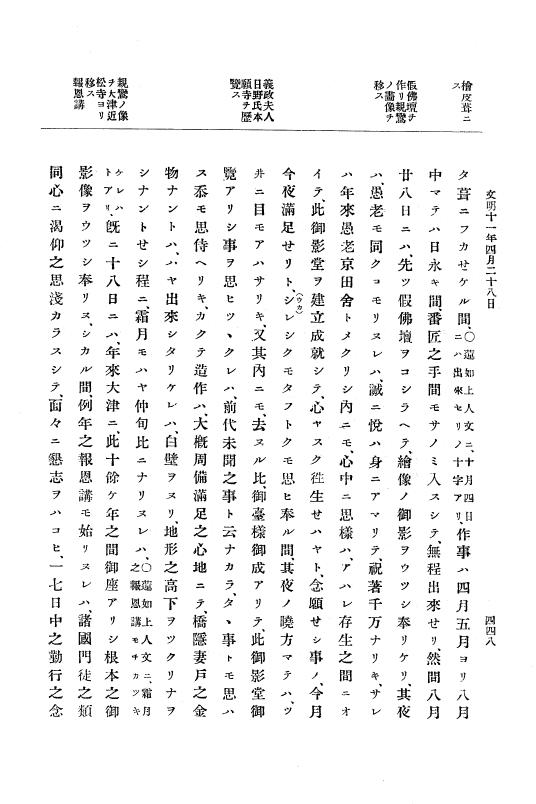 文明十一年四月二十八日
四四八
檜皮葺ニ
ス
假佛壇ヲ
作リ親鸞
ノ畫像ヲ
移ス
義政夫人
日野氏本
願寺ヲ歷
覽ス
親鸞ノ像
ヲ大津近
松寺ヨリ
移ス
報恩講
タ葺ニフカセケル間、〇蓮如上人文ニ、十月四日
ニハ出來セリノ十字アリ、作事ハ四月五月ヨリ八月
中マテハ日永キ間、番匠之手間モサノミ入スシテ、無程出來せリ、然間八月
廿八日ニハ、先ツ假佛壇ヲコシラヘテ、繪像ノ御影ヲウツシ奉リケリ、其夜
ハ、愚老モ同クコモリヌレハ、誠ニ悅ハ身ニアマリテ、祝著千万ナリキ、サレ
ハ年來愚老京田舍トメクリシ內ニモ、心中ニ思樣ハ、アハレ存生之間ニオ
イテ、此御影堂ヲ建立成就シテ、心ヤスク往生せハヤト、念願せシ事ノ、今月
今夜滿足せリト、シ(ウカ)レシクモタフトクモ思ヒ奉ル間、其夜ノ曉方マテハ、ツ
井ニ目モアハサリキ、又其內ニモ、去ヌル比、御臺樣御成アリテ、此御影堂御
覽アリシ事ヲ思ヒツヽクレハ、前代未聞之事ト云ナカラ、タヽ事トモ思ハ
ス忝モ思侍ヘリキ、カクテ造作ハ、大槪周備滿足之心地ニテ、橋隱妻戶之金
物ナントハ、ハヤ出來シタリケレハ、白壁ヲヌリ、地形之高下ヲツクリナヲ
シナントせシ程ニ、霜月モハヤ仲旬比ニナリヌレハ、〇蓮如上人文ニ、霜月
之報恩講モチカツキ
ケレハ
トアリ、旣ニ十八日ニハ、年來大津ニ、此十餘ケ年之間御座アリシ根本之御
影像ヲウツシ奉リヌ、シカル間、例年之報恩講モ始リヌレハ、諸國門徒之類
同心ニ渴仰之思淺カラスシテ、面々ニ懇志ヲハコヒ、一七日中之勤行之念